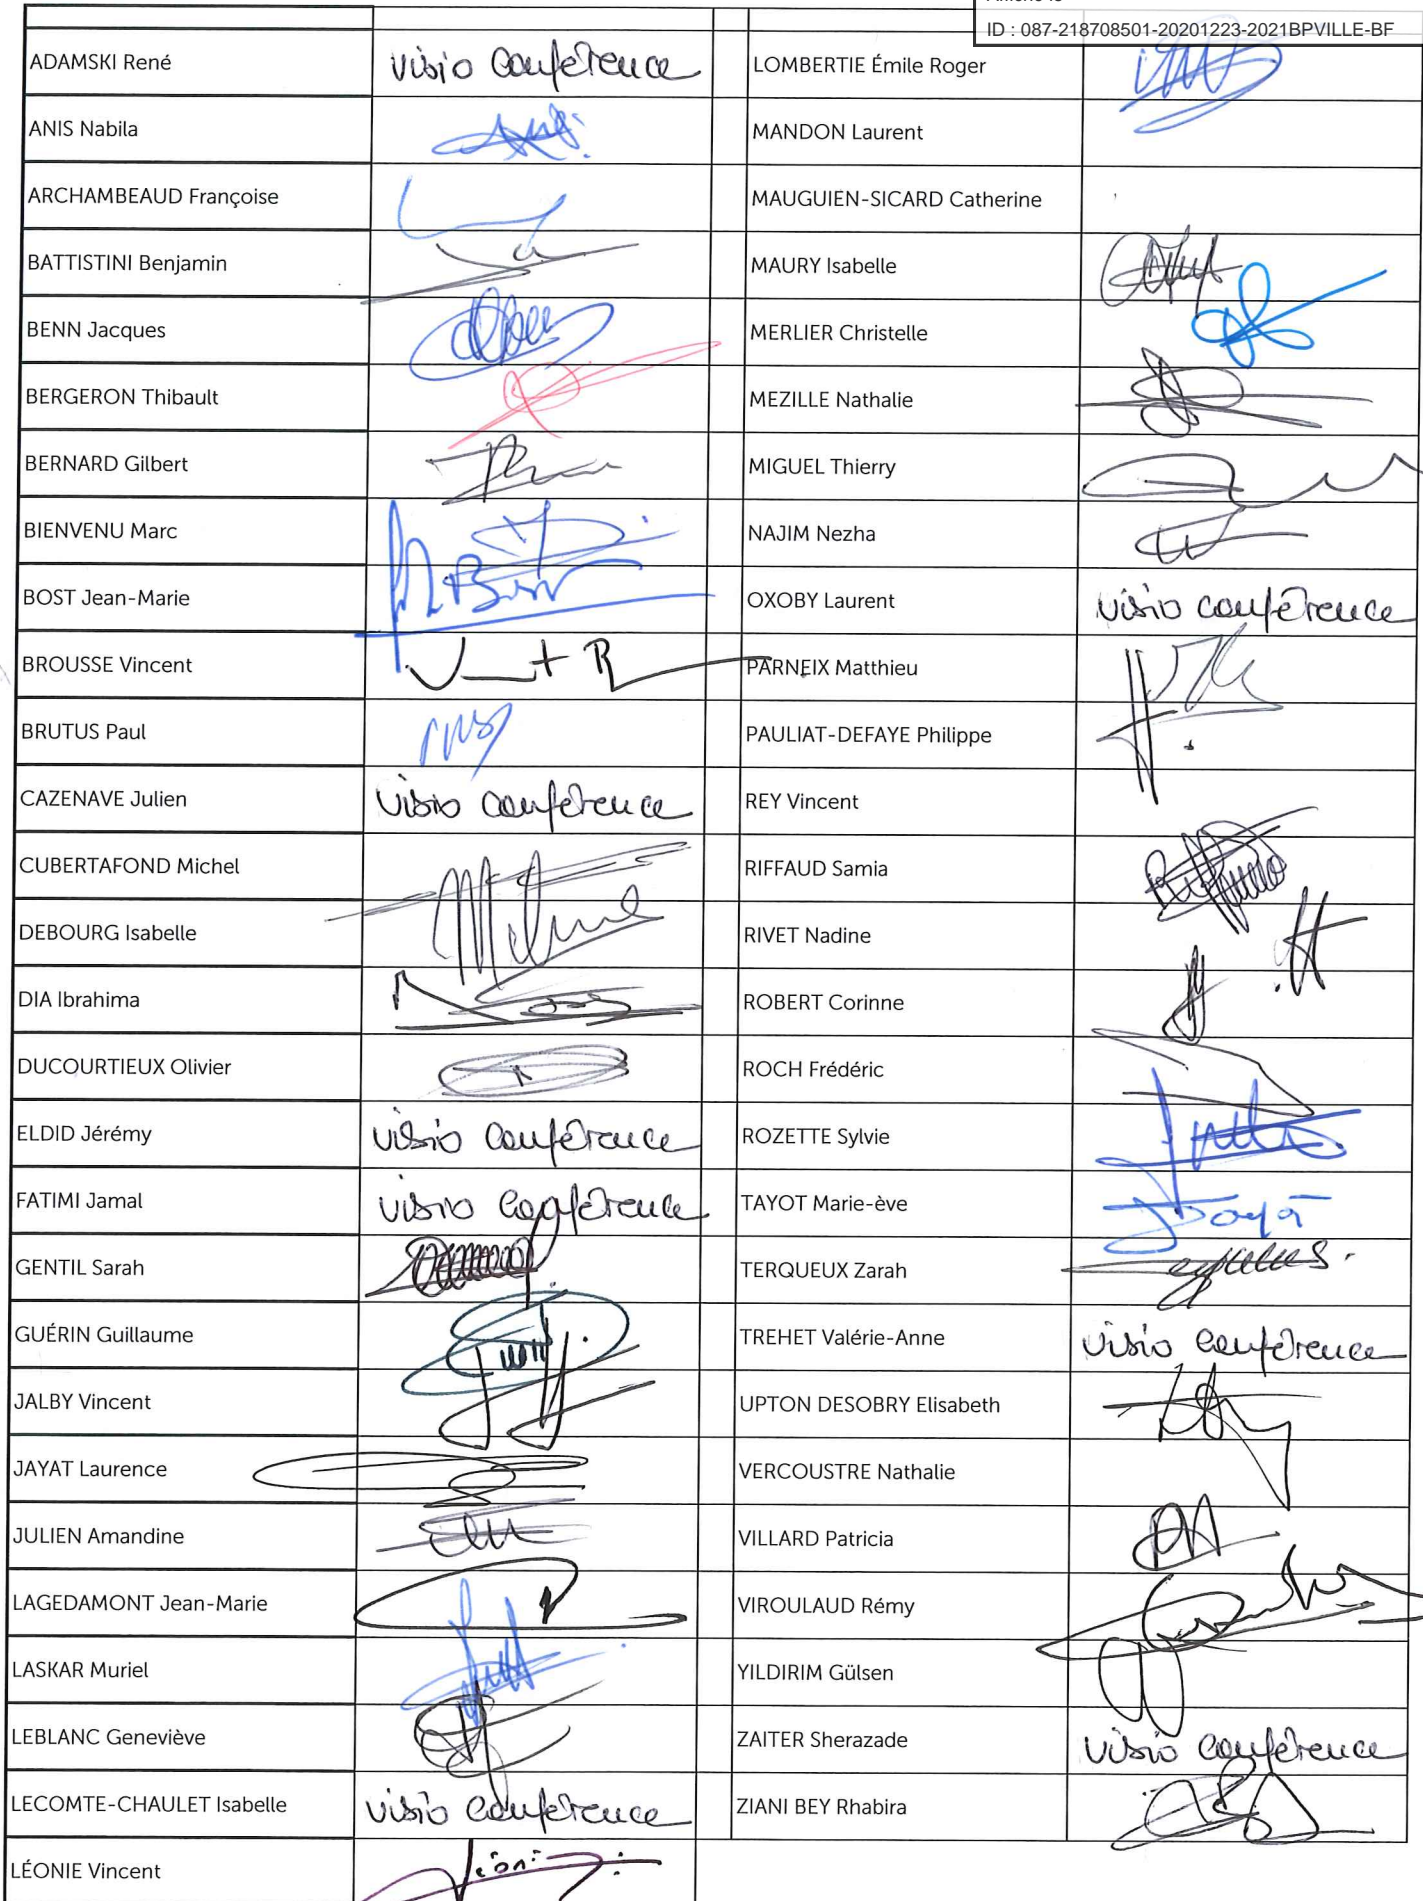 ID : 087-218708501-20201223-2021BPVILLE-BF
ADAMSKI René visio conférence
ANIS Nabila
ARCHAMBEAUD Françoise
BATTISTINI Benjamin
BENN Jacques
BERGERON Thibault
BERNARD Gilbert
BIENVENU Marc
BOST Jean-Marie
BROUSSE Vincent
BRUTUS Paul
CAZENAVE Julien visio conférence
CUBERTAFOND Michel
DEBOURG Isabelle
DIA Ibrahima
DUCOURTIEUX Olivier
ELDID Jérémy visio conférence
FATIMI Jamal visio conférence
GENTIL Sarah
GUÉRIN Guillaume
JALBY Vincent
JAYAT Laurence
JULIEN Amandine
LAGEDAMONT Jean-Marie
LASKAR Muriel
LEBLANC Geneviève
LECOMTE-CHAULET Isabelle visio conférence
LÉONIE Vincent
LOMBERTIE Émile Roger
MANDON Laurent
MAUGUIEN-SICARD Catherine
MAURY Isabelle
MERLIER Christelle
MEZILLE Nathalie
MIGUEL Thierry
NAJIM Nezha
OXOBY Laurent visio conférence
PARNEIX Matthieu
PAULIAT-DEFAYE Philippe
REY Vincent
RIFFAUD Samia
RIVET Nadine
ROBERT Corinne
ROCH Frédéric
ROZETTE Sylvie
TAYOT Marie-ève
TERQUEUX Zarah
TREHET Valérie-Anne visio conférence
UPTON DESOBRY Elisabeth
VERCOUSTRE Nathalie
VILLARD Patricia
VIROULAUD Rémy
YILDIRIM Gülsen
ZAITER Sherazade visio conférence
ZIANI BEY Rhabira